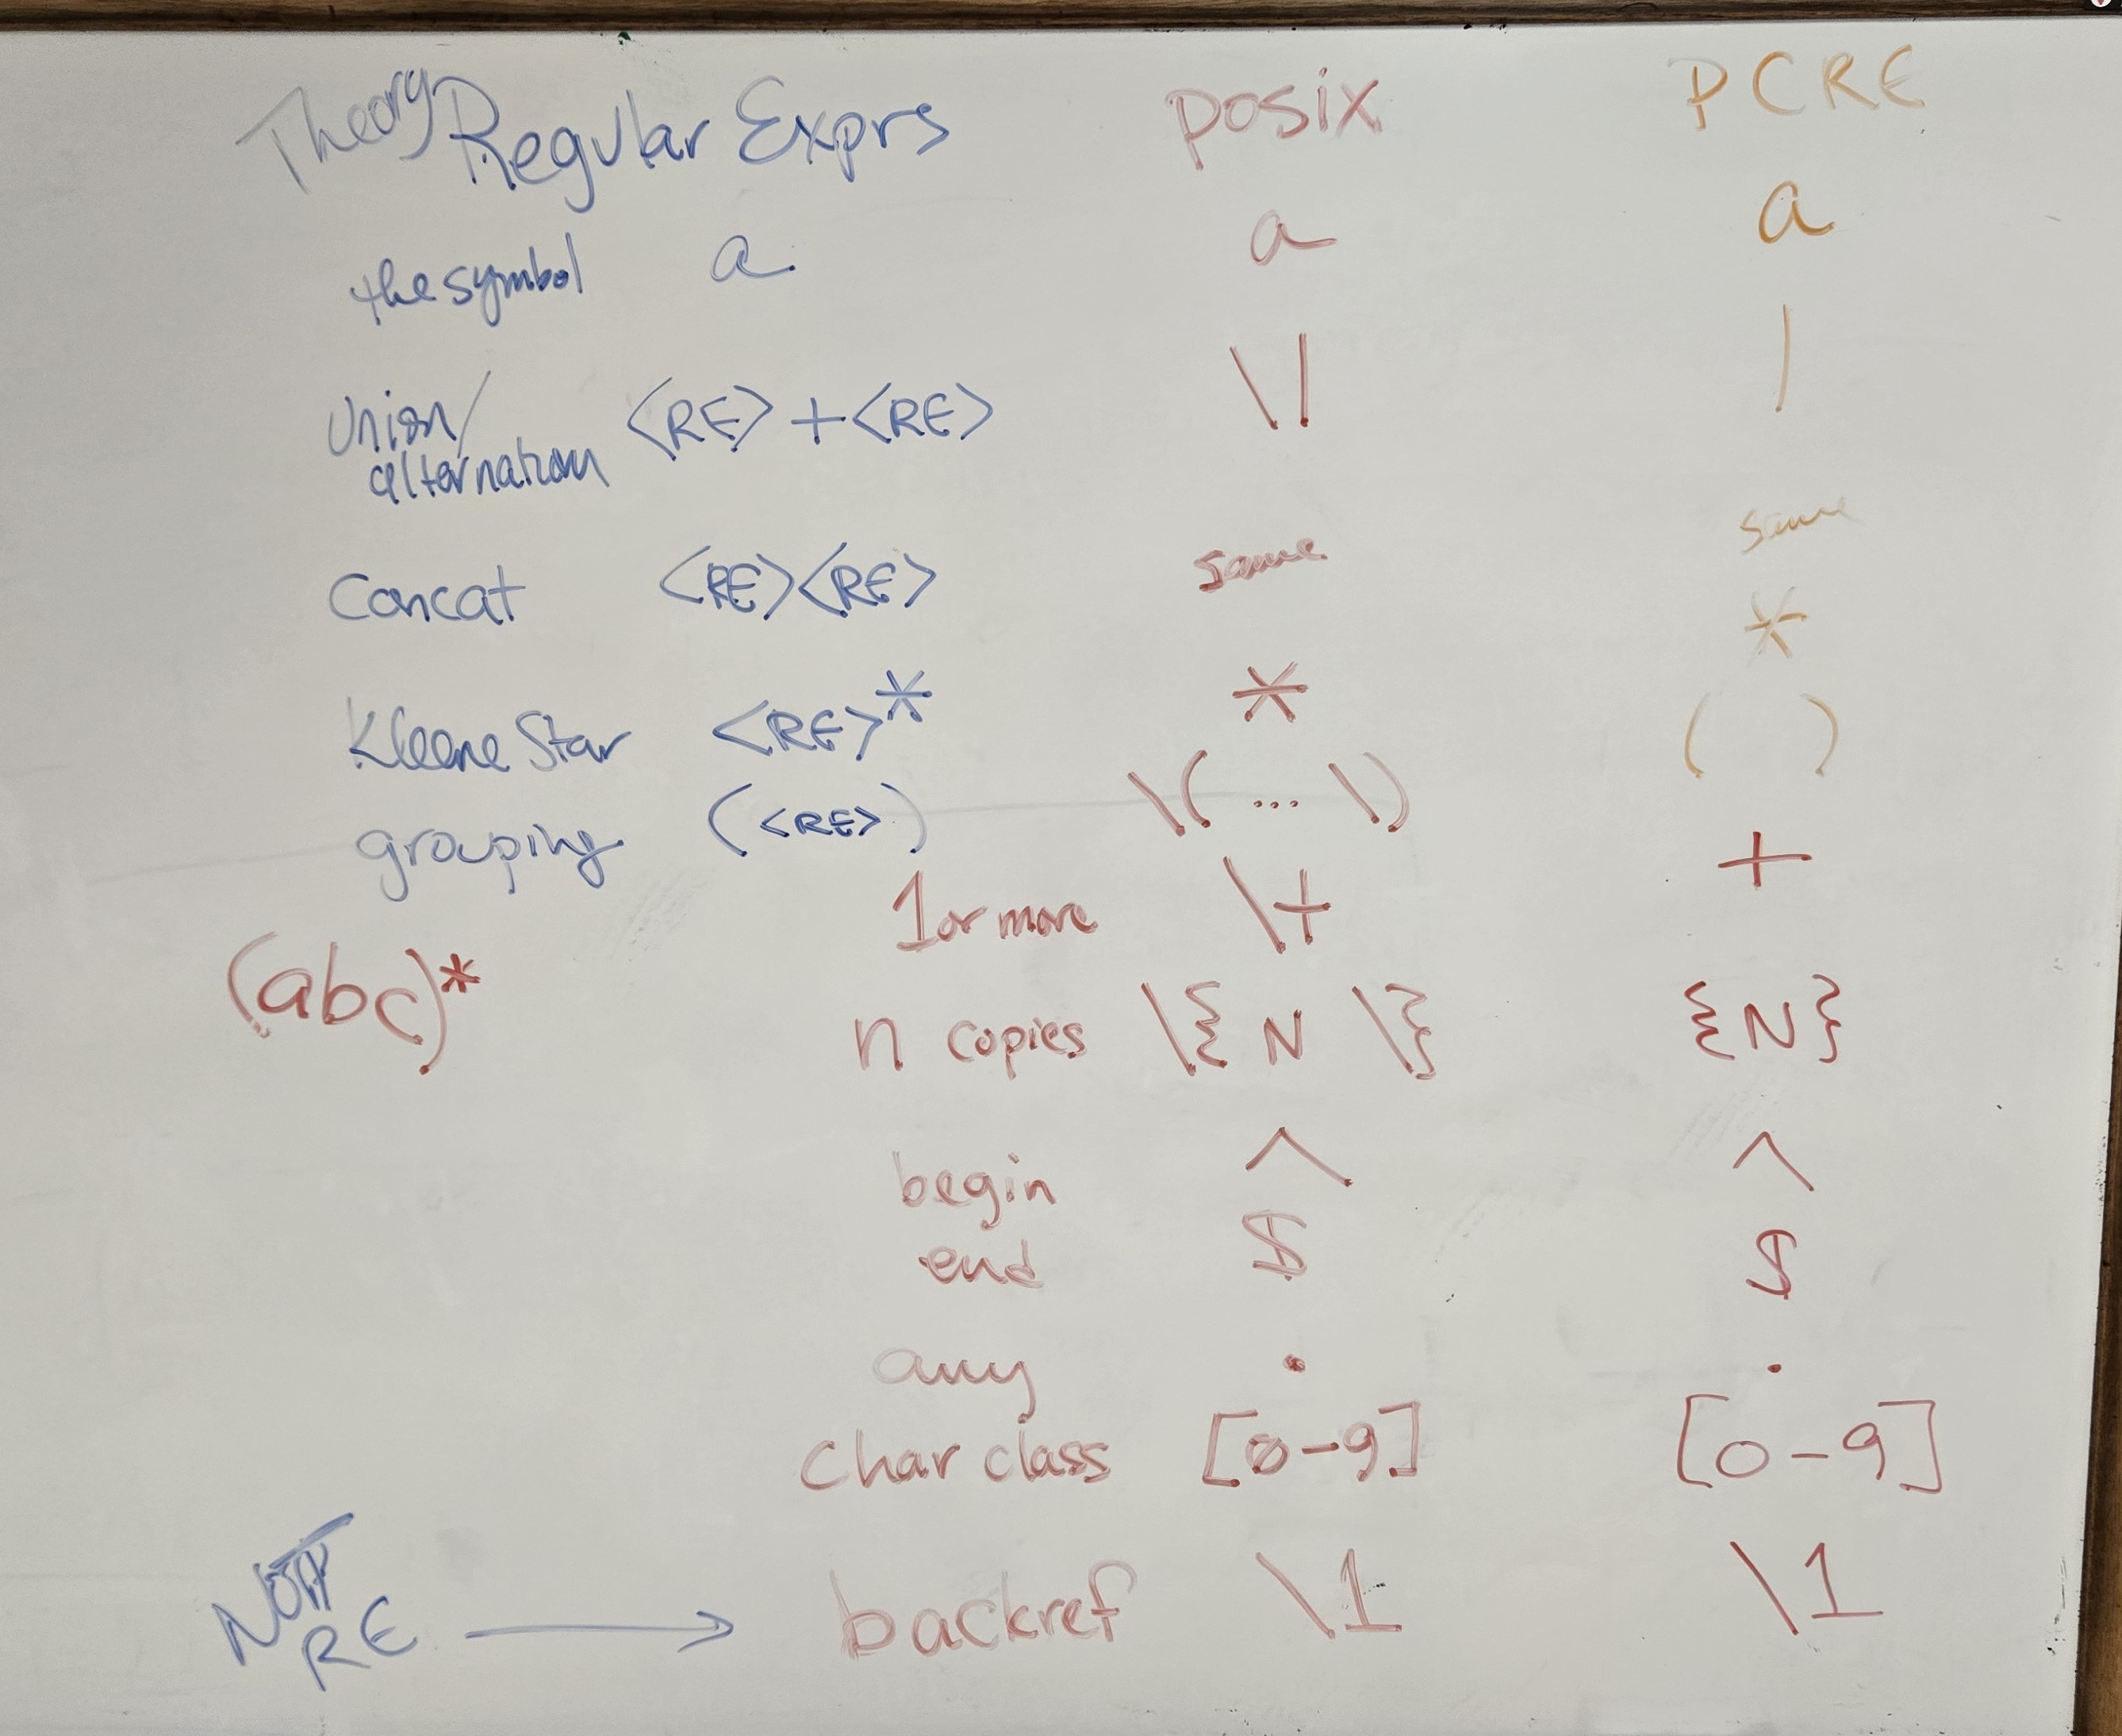 Theory Regular Exprs posix PCRE
the symbol a a a
Union/ <RE> + <RE> \| |
alternation
Concat <RE><RE> same same
Kleene Star <RE>* * *
grouping (<RE>) \( ... \) ( )
1 or more \+ +
(abc)*
n copies \{ N \} {N}
begin ^ ^
end $ $
any . .
Char class [0-9] [0-9]
NOT
RE → backref \1 \1